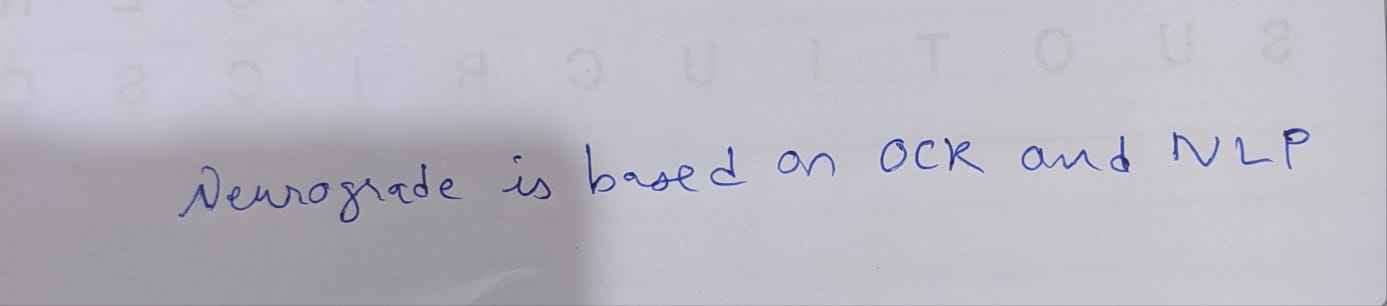 Neurograde is based on OCR and NLP